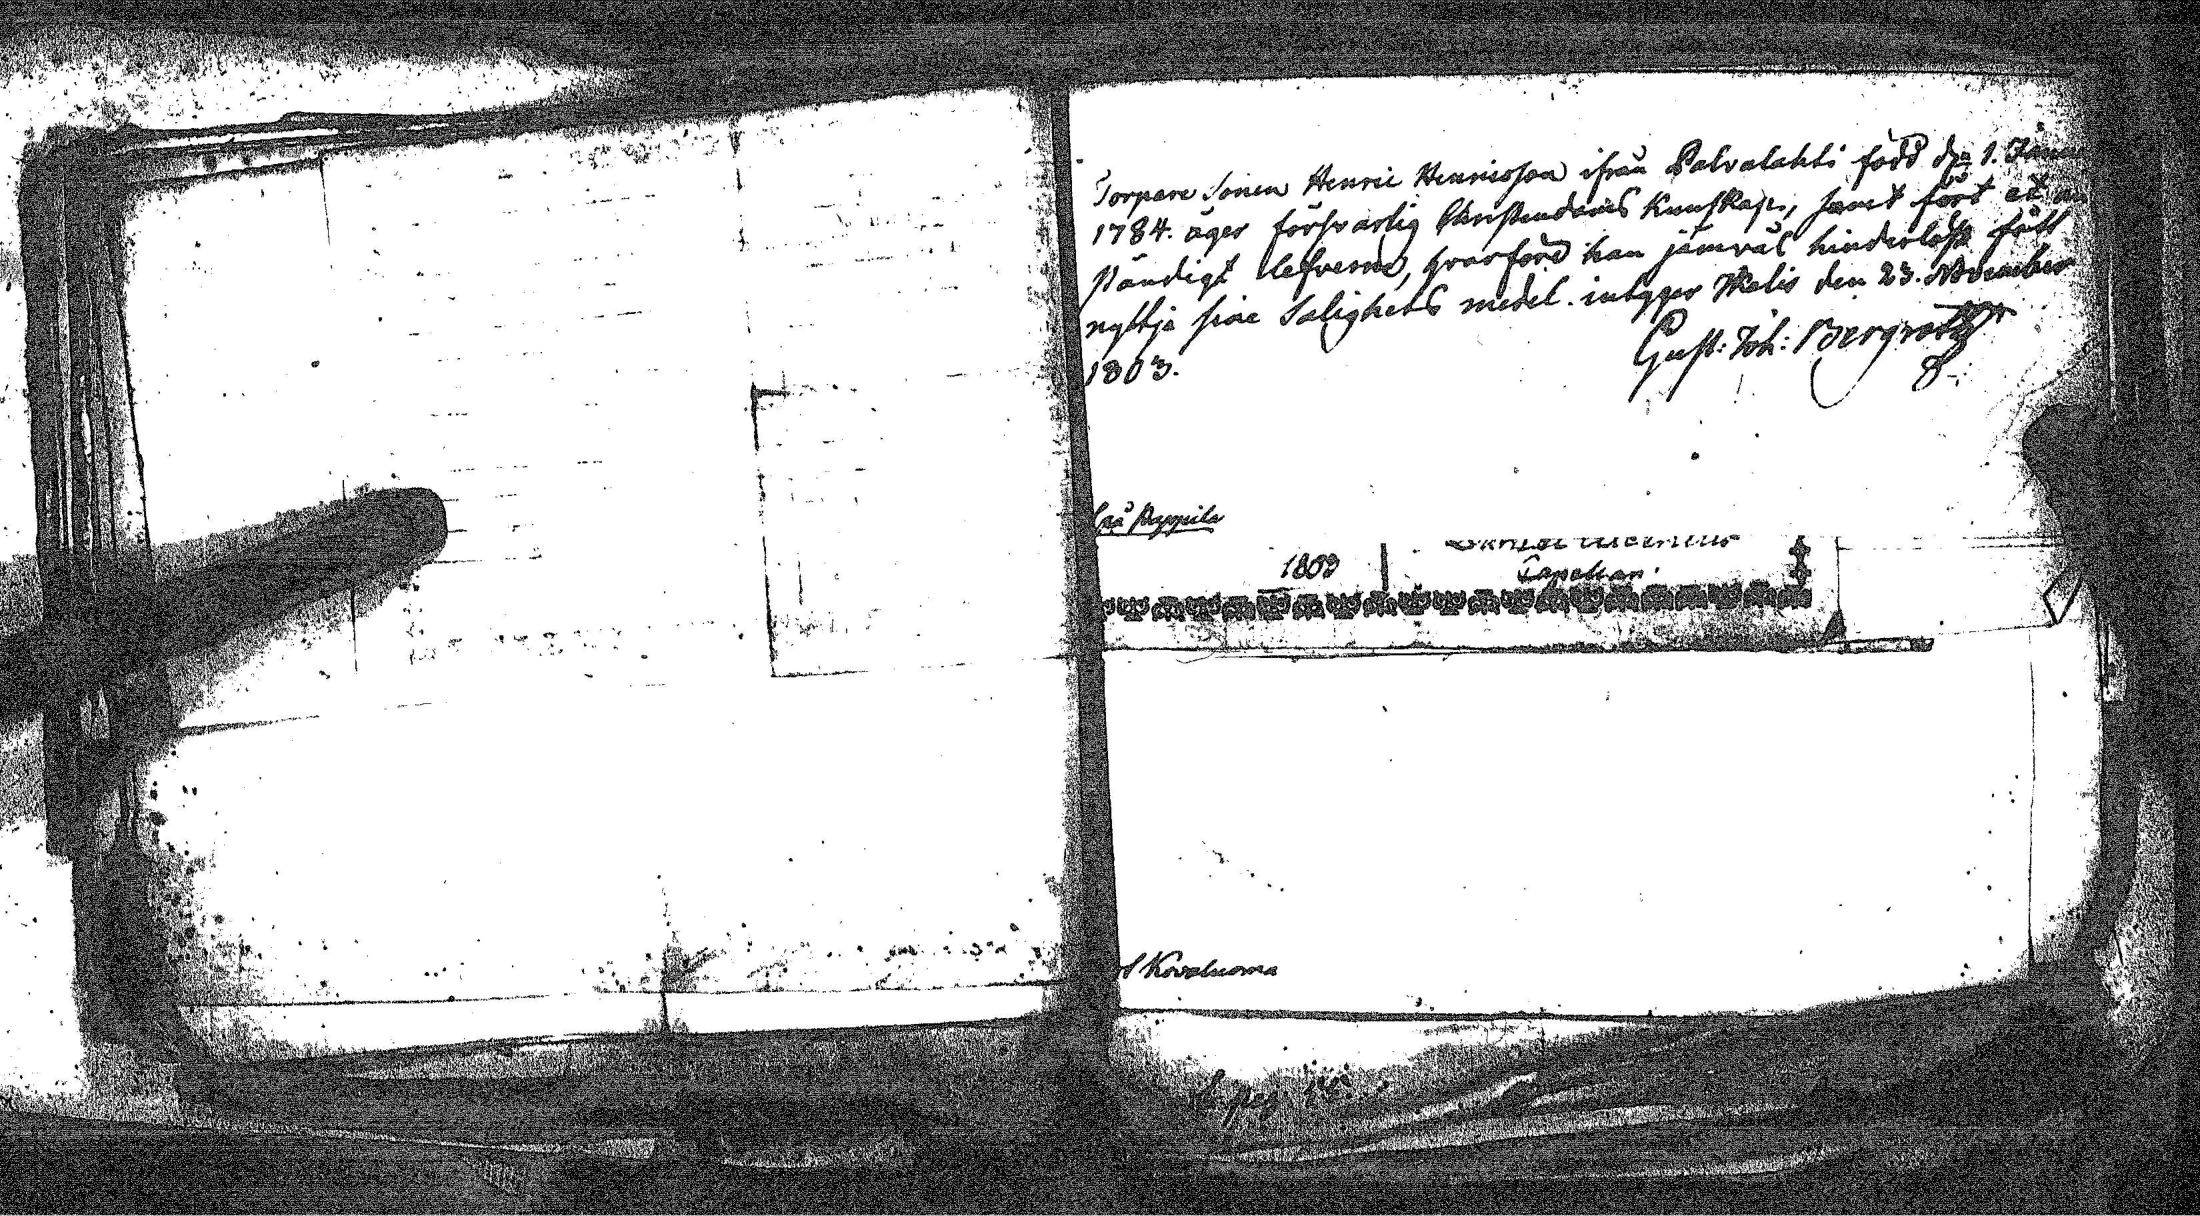 Torpare Sonen Henric Henricsson ifrån Palvalahti född den 1. Janu
1784. äger försvarlig Christendoms Kunskap, samt fört et an
ständigt lefverne, hvarföre han jämväl hinderlöst fått
nyttja sine Salighets medel. intygar Melis den 23. November
1803.
Gust: Joh: Bergroth
Pappila
1803
Capellan.
Kovaluoma